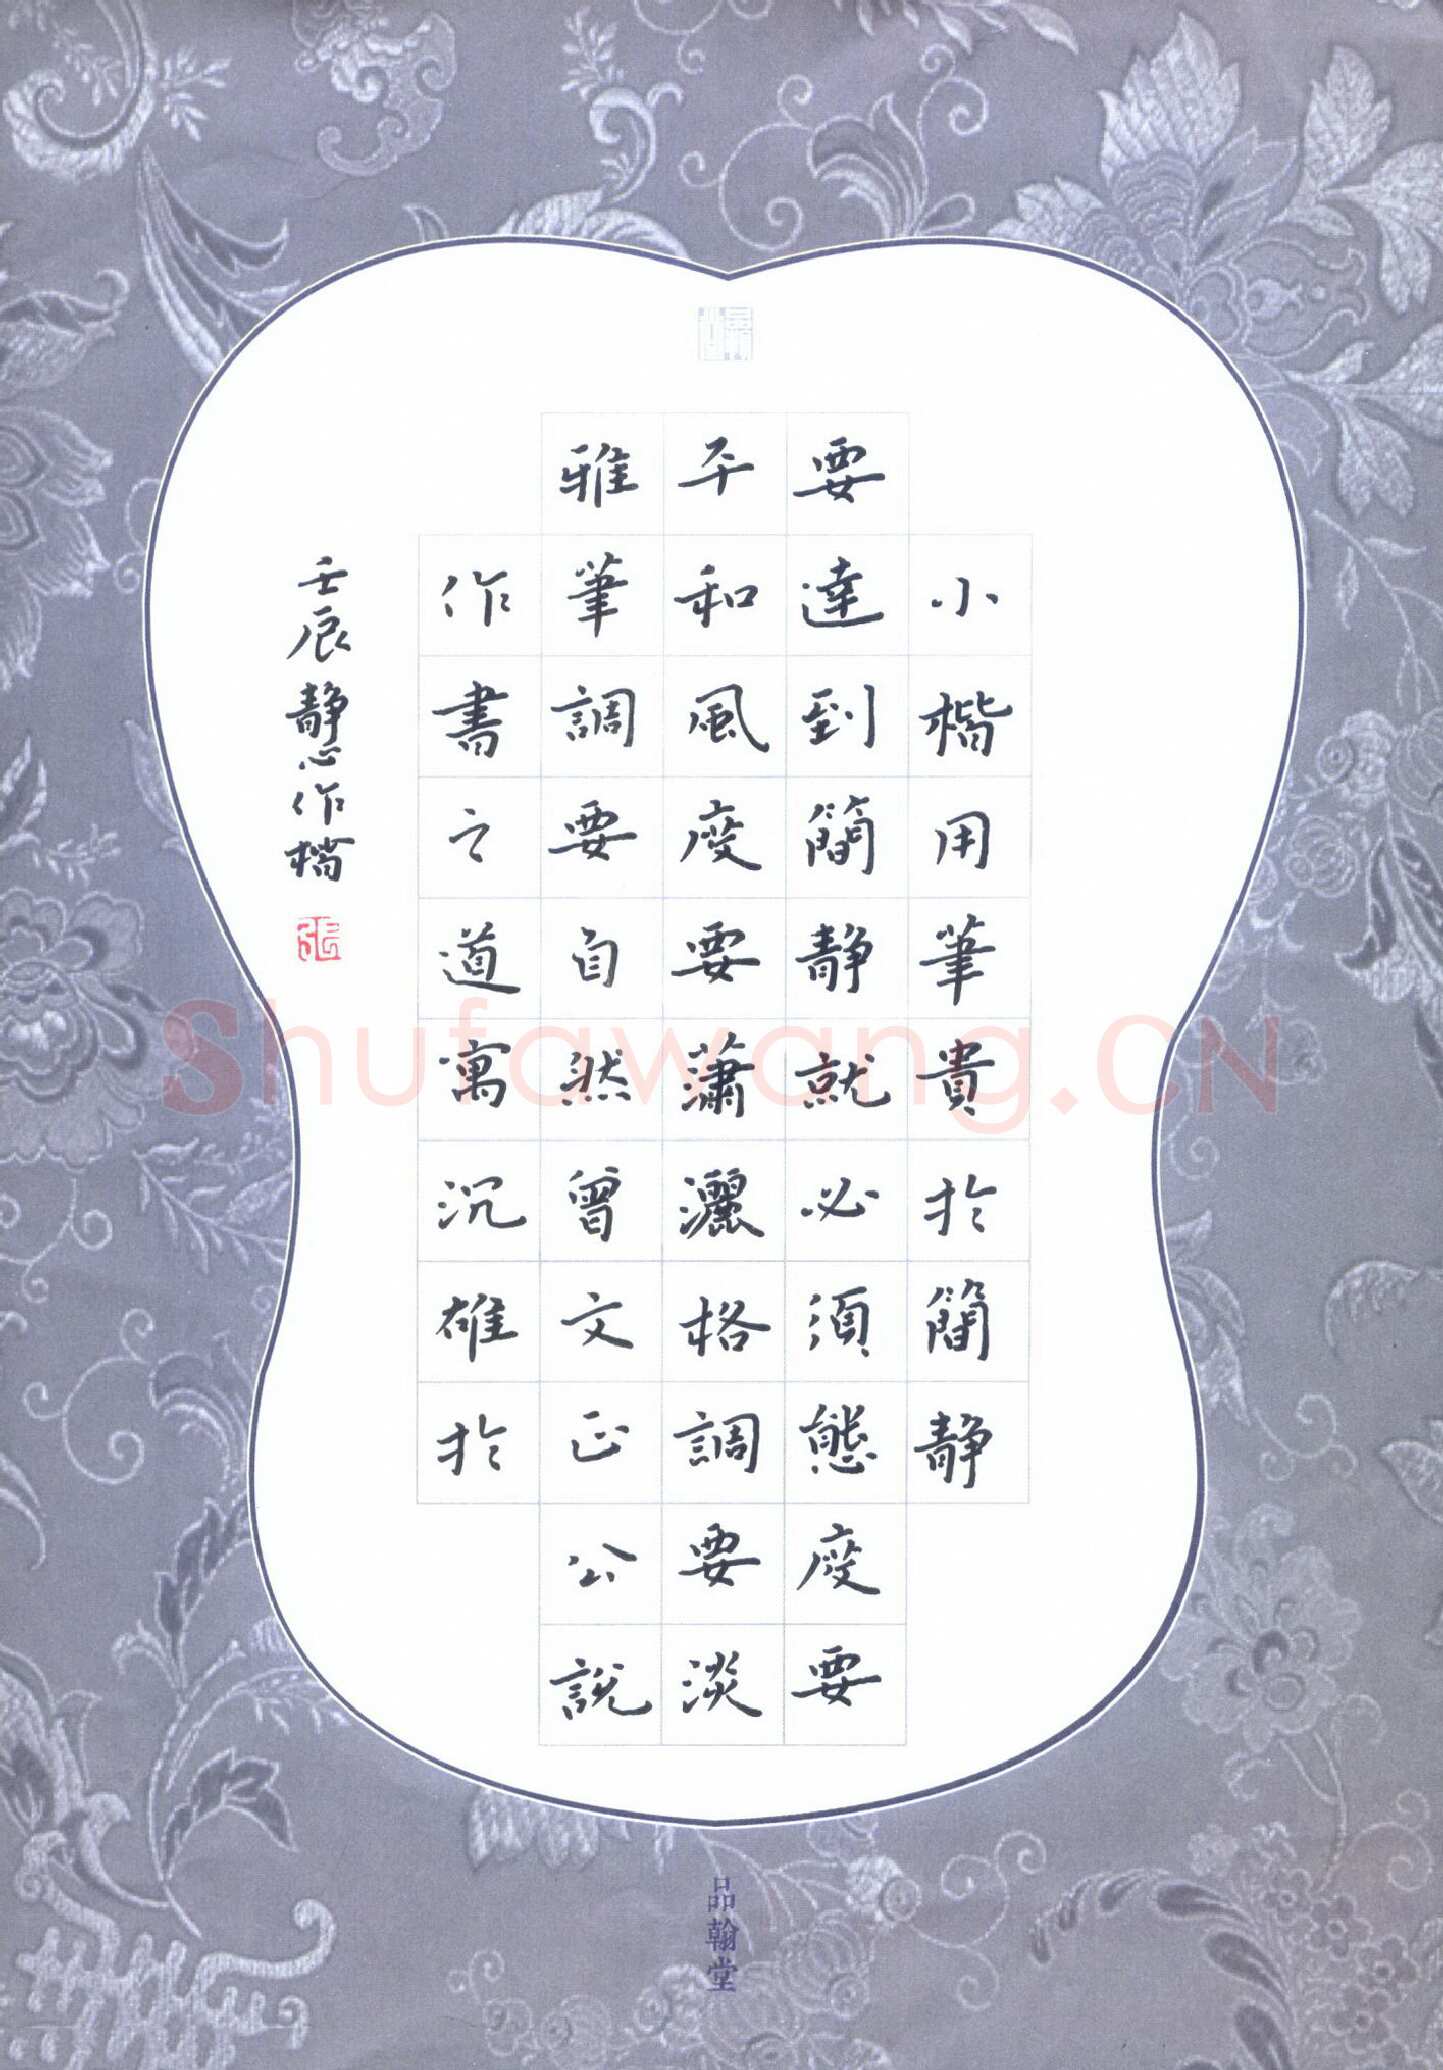 小楷用筆貴於簡靜
要達到簡靜就必須態度要
平和風度要蕭灑格調要淡
雅筆調要自然曾文正公說
作書之道寓沉雄於
壬辰靜心作楷
張
品翰堂
Shufawang.CN